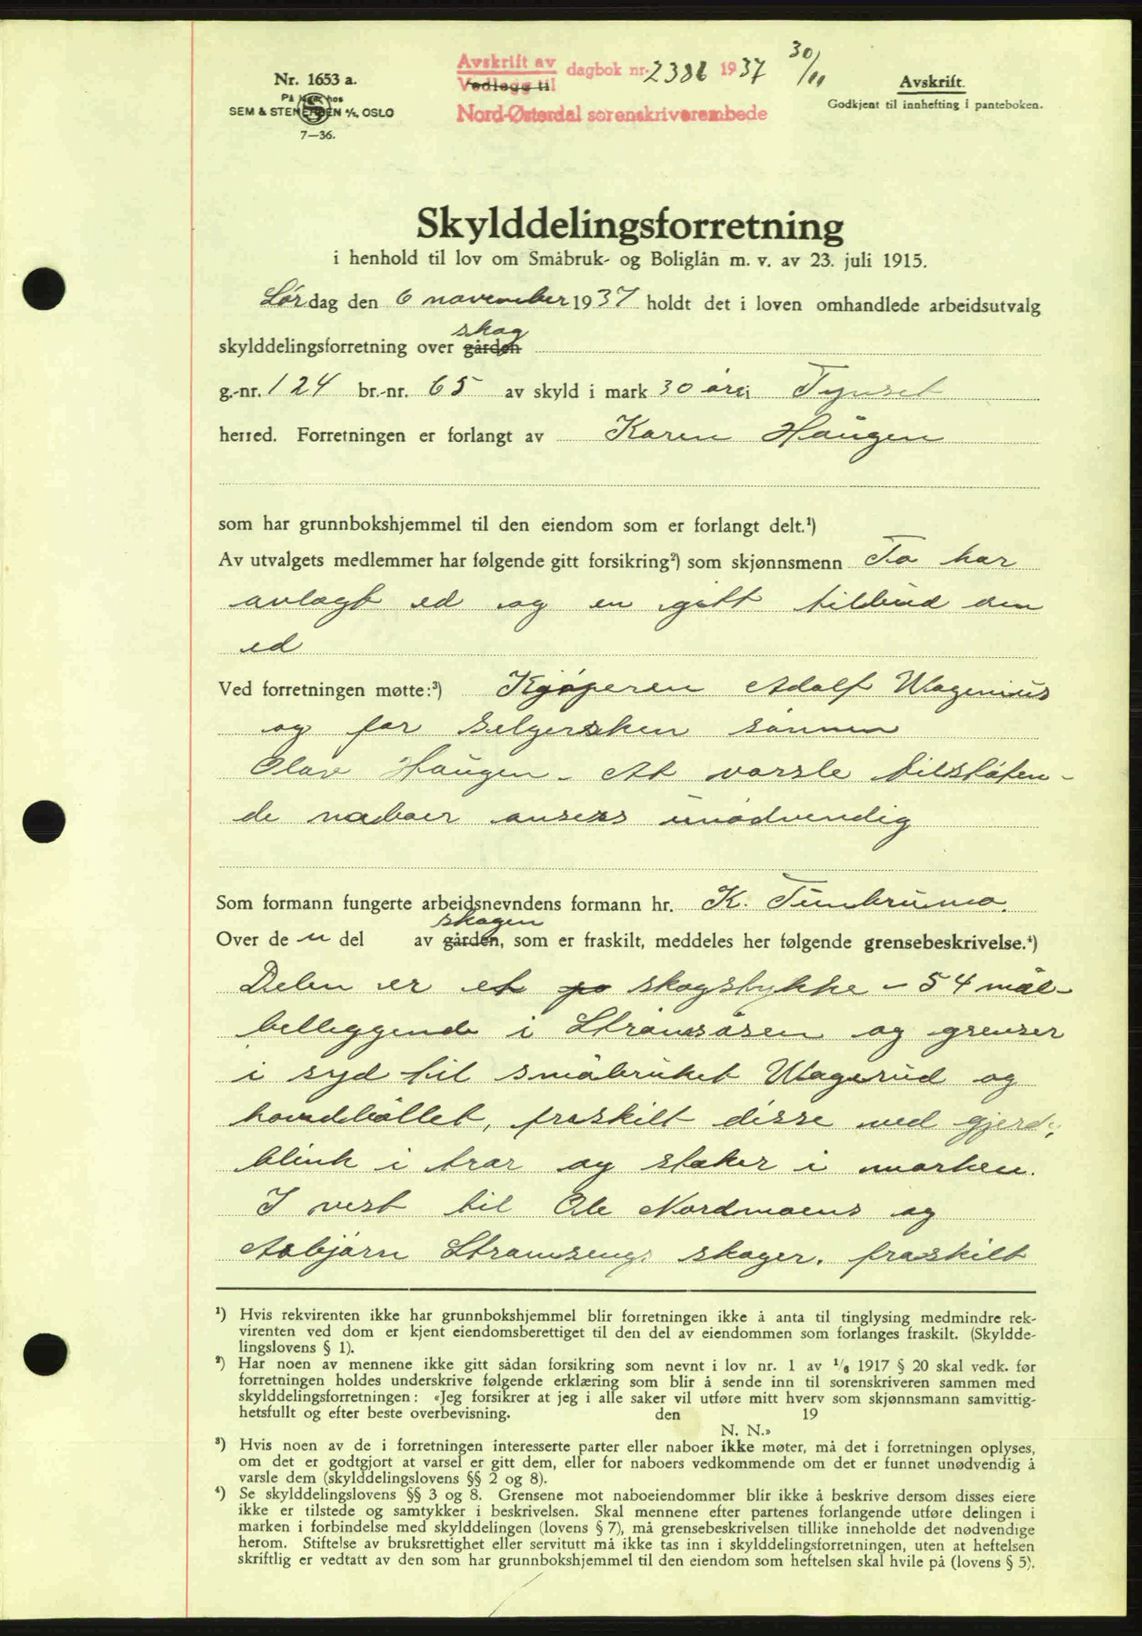 Nr. 1653 a.
På lager hos
SEM & STENERSEN A/S, OSLO
7—36.
Avskrift av
Vedlegg til
dagbok nr. 2386 1937 30/11
Nord-Østerdal sorenskriverembede
Avskrift.
Godkjent til innhefting i panteboken.
Skylddelingsforretning
i henhold til lov om Småbruk- og Boliglån m. v. av 23. juli 1915.
Lørdag den 6 november 1937 holdt det i loven omhandlede arbeidsutvalg
skog
skylddelingsforretning over gården
g.-nr. 124 br.-nr. 65 av skyld i mark 30 øre i Tynset
herred. Forretningen er forlangt av Karen Haugen
som har grunnbokshjemmel til den eiendom som er forlangt delt.¹)
Av utvalgets medlemmer har følgende gitt forsikring²) som skjønnsmenn To har
avlagt ed og en gitt tilbud om
ed
Ved forretningen møtte:³) Kjøperen Adolf Wagenius
og for selgersken sønnen
Olav Haugen - At varsle tilstøten-
de naboer ansees unødvendig
Som formann fungerte arbeidsnevndens formann hr. K. Tunbrumo.
skogen
Over de n del av gården, som er fraskilt, meddeles her følgende grensebeskrivelse.⁴)
Delen er et po skogstykke - 54 mål -
belliggende i Strømsåsen og grenser
i syd til småbruket Wagerud og
fraskilt disse ved gjerde,
blink i trær og staker i marken.
I vest til Ole Nordmoens og
Asbjørn Strømsengs skoger. fraskilt
¹) Hvis rekvirenten ikke har grunnbokshjemmel blir forretningen ikke å anta til tinglysing medmindre rek-
virenten ved dom er kjent eiendomsberettiget til den del av eiendommen som forlanges fraskilt. (Skyldde-
lingslovens § 1).
²) Har noen av mennene ikke gitt sådan forsikring som nevnt i lov nr. 1 av 1/6 1917 § 20 skal vedk. før
forretningen holdes underskrive følgende erklæring som blir å sende inn til sorenskriveren sammen med
skylddelingsforretningen: «Jeg forsikrer at jeg i alle saker vil utføre mitt hverv som skjønnsmann samvittig-
hetsfullt og efter beste overbevisning. den 19
N. N.»
³) Hvis noen av de i forretningen interesserte parter eller naboer ikke møter, må det i forretningen oplyses,
om det er godtgjort at varsel er gitt dem, eller for naboers vedkommende om det er funnet unødvendig å
varsle dem (skylddelingslovens §§ 2 og 8).
⁴) Se skylddelingslovens §§ 3 og 8. Grensene mot naboeiendommer blir ikke å beskrive dersom disses eiere
ikke er tilstede og samtykker i beskrivelsen. Skal mennene efter partenes forlangende utføre delingen i
marken i forbindelse med skylddelingen (lovens § 7), må grensebeskrivelsen tillike inneholde det nødvendige
herom. Stiftelse av bruksrettighet eller servitutt må ikke tas inn i skylddelingsforretningen, uten at heftelsen
skriftlig er vedtatt av den som har grunnbokshjemmel til den eiendom som heftelsen skal hvile på (lovens § 5).